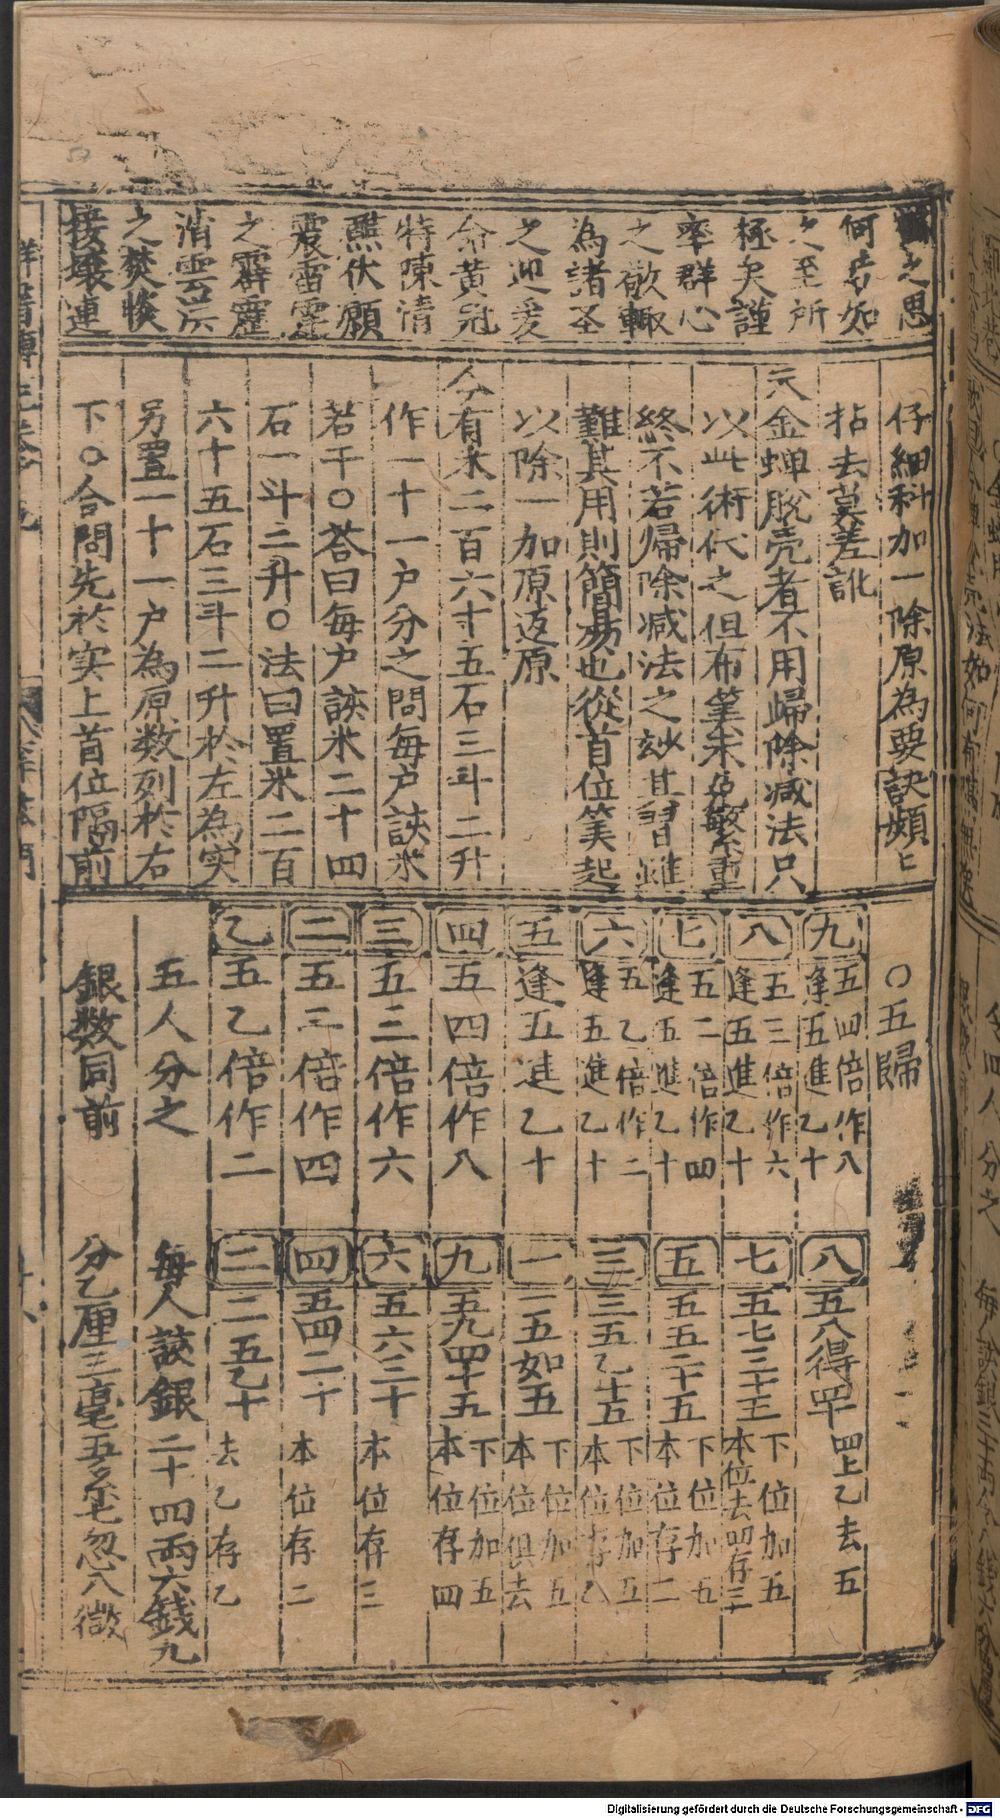 之思
何步如
之至所
極矣謹
率群心
之敬輙
為諸圣
之迎爰
命黄冠
特陳清
醮伏願
震雷霆
之霹靂
消雲災
之焚惔
接壤連
仔細科加一除原為要訣頻匕
拈去莫差訛
夫金蝉脫壳者不用歸除减法只
以此術代之但布筭未免繁重
終不若歸除减法之玅其習雖
難其用則簡昜也從首位筭起
以除一加原返原
今有米二百六十五石三斗二升
作一十一户分之問每户該米
若干○荅曰每户該米二十四
石一斗二升○法曰置米二百
六十五石三斗二升於左為实
另置一十一户為原数列於右
下○合問先於实上首位隔前
○五歸
九 五四倍作八 逢五進乙十
八 五三倍作六 逢五進乙十
七 五二倍作四 逢五進乙十
六 五乙倍作二 逢五進乙十
五 逢五進乙十
四 五四倍作八
三 五三倍作六
二 五二倍作四
乙 五乙倍作二
五人分之
銀数同前
八 五八得四十 四上乙去五
七 五七三十五 下位加五 本位去四存三
五 五五二十五 下位加五 本位存二
三 三五乙十五 下位加五 本位存乙
一 一五如五 下位加五 本位俱去
九 五九四十五 下位加五 本位存四
六 五六三十 本位存三
四 五四二十 本位存二
二 二五乙十 去乙存乙
每人該銀二十四両六錢九
分乙厘三毫五絲毛忽八微
Digitalisierung gefördert durch die Deutsche Forschungsgemeinschaft - DFG